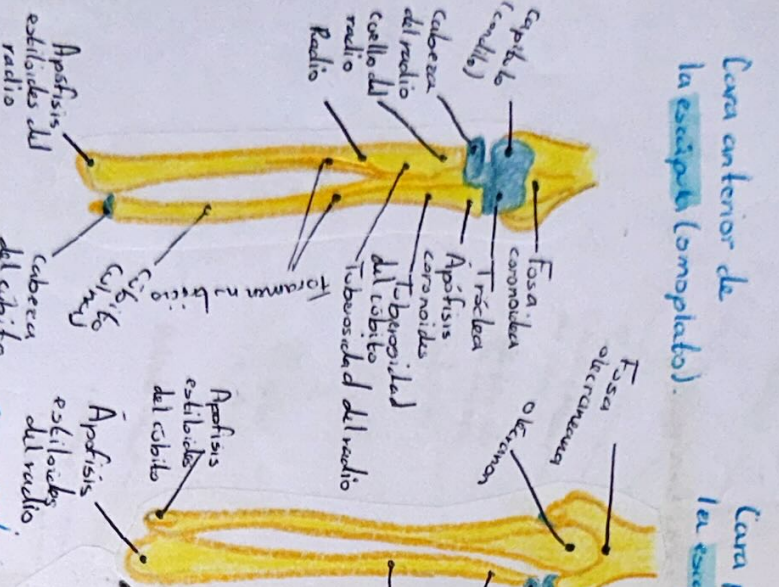 Cara anterior de
la escápula (omoplato).
Cara
la es
Capítulo
(cóndilo)
Cabeza
del radio
cuello del
radio
Radio
Apófisis
estiloides del
radio
Fosa
coronoidea
Tróclea
Apófisis
coronoides
Tuberosidad
del cúbito
Tuberosidad del radio
Foramen nutricio
Cúbito
Cabeza
del cúbito
Fosa
olecraneana
Olécranon
Apófisis
estiloides
del cúbito
Apófisis
estiloides
del radio